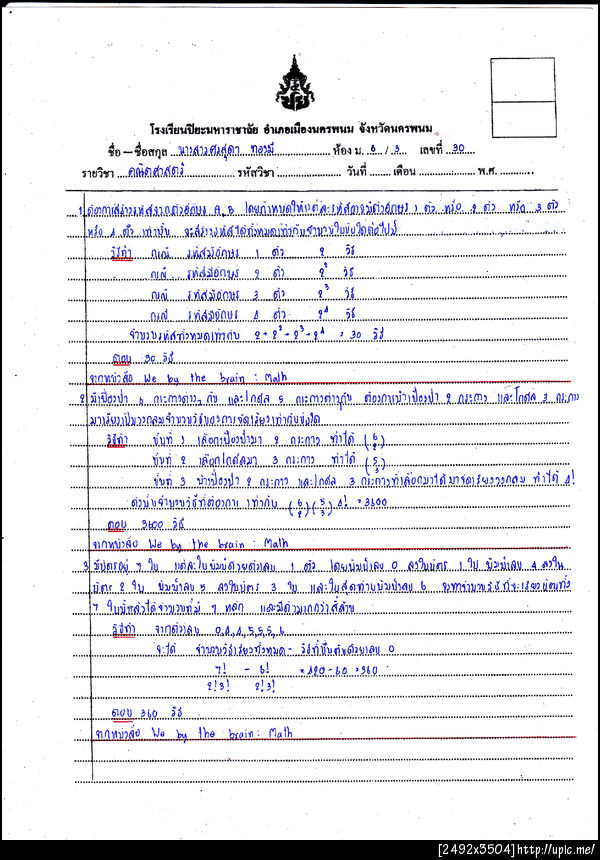 โรงเรียนปิยะมหาราชาลัย อำเภอเมืองนครพนม จังหวัดนครพนม
ชื่อ – ชื่อสกุล นางสาวศรสุดา ทองมี ห้อง ม. 6 / 3 เลขที่ 30
รายวิชา คณิตศาสตร์ รหัสวิชา วันที่ เดือน พ.ศ.
1 ต้องการสร้างรหัสจากตัวอักษร A, B โดยกำหนดให้แต่ละรหัสควรมีตัวอักษร 1 ตัว หรือ 2 ตัว หรือ 3 ตัว
หรือ 4 ตัว เท่านั้น จะสร้างรหัสได้ทั้งหมดเท่ากับจำนวนในข้อใดต่อไปนี้
วิธีทำ กรณี รหัสมีอักษร 1 ตัว 2 วิธี
กรณี รหัสมีอักษร 2 ตัว 2² วิธี
กรณี รหัสมีอักษร 3 ตัว 2³ วิธี
กรณี รหัสมีอักษร 4 ตัว 2⁴ วิธี
จำนวนรหัสทั้งหมดเท่ากับ 2+2²+2³+2⁴ = 30 วิธี
ตอบ 30 วิธี
จากหนังสือ We by the brain : Math
2 มีเป๊ปซี่ 6 กระป๋องต่างๆ กัน และโค้ก 5 กระป๋องต่างกัน ต้องการนำ 2 และ 3
มาเรียงเป็นวงกลมจำนวนวิธีของการจัดเรียงเท่ากับข้อใด
วิธีทำ ขั้นที่ 1 เลือก 2 ทำได้ (6 2)
ขั้นที่ 2 เลือก 3 ทำได้ (5 3)
ขั้นที่ 3 นำ 2 และ 3 ที่เลือกมาได้มาจัดเรียงวงกลม ทำได้ 4!
ดังนั้นจำนวนวิธีที่ต้องการ เท่ากับ (6 2)(5 3) 4! = 3600
ตอบ 3600 วิธี
จากหนังสือ We by the brain : Math
3 มีบัตรอยู่ 7 ใบ แต่ละใบพิมพ์ด้วยตัวเลข 1 ตัว โดยพิมพ์เลข 0 ลงในบัตร 1 ใบ พิมพ์เลข 4 ลงใน
บัตร 2 ใบ พิมพ์เลข 5 ลงในบัตร 3 ใบ และใบสุดท้ายพิมพ์เลข 6 จงหาจำนวนวิธีที่จะเรียงบัตรทั้ง
7 ใบนี้แล้วได้จำนวนที่มี 7 หลัก และมีค่ามากกว่าสี่ล้าน
วิธีทำ จากตัวเลข 0,4,4,5,5,5,6
จะได้ จำนวนวิธีเรียงทั้งหมด - วิธีที่ขึ้นต้นด้วยเลข 0
7! - 6! = 420 - 60 = 360
2!3! 2!3!
ตอบ 360 วิธี
จากหนังสือ We by the brain : Math
[2492x3504]http://upic.me/